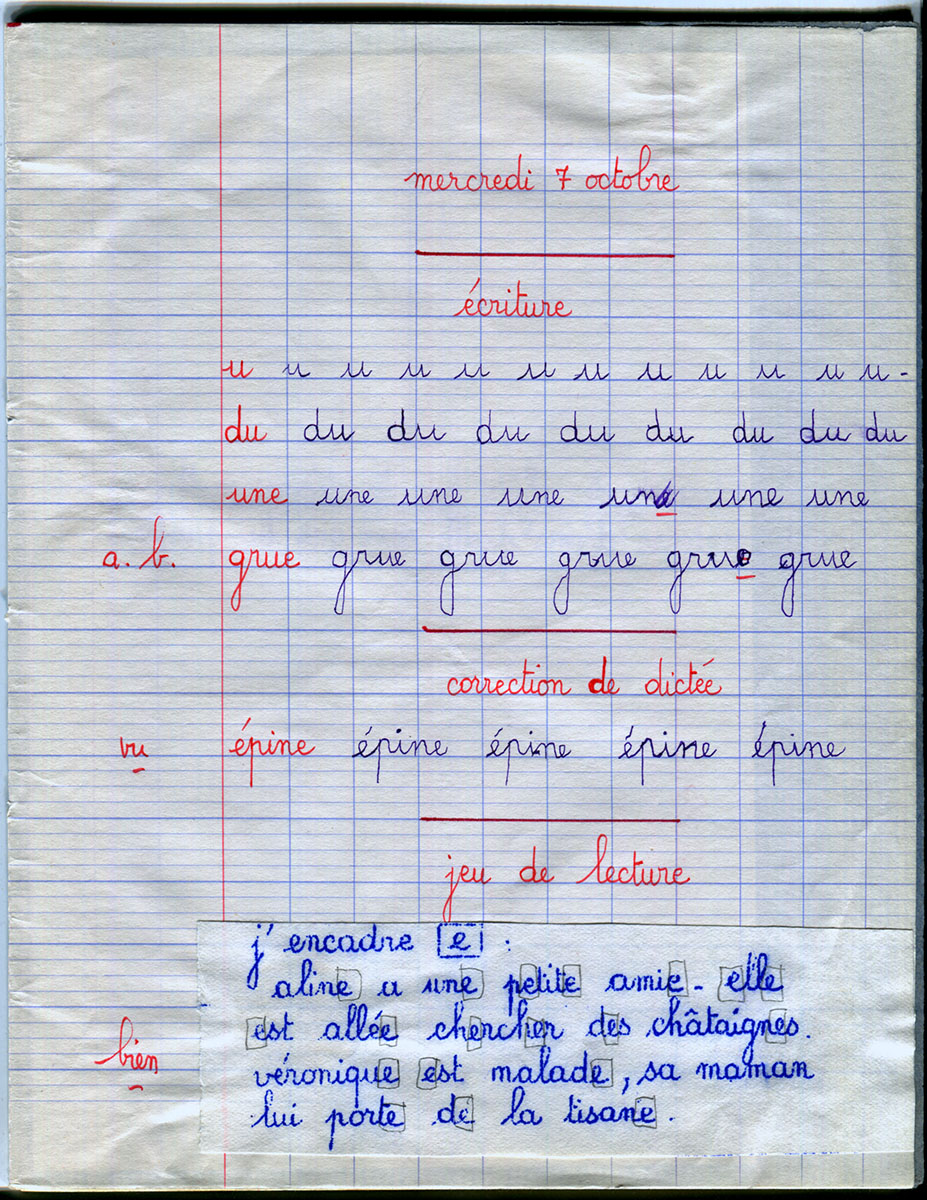 mercredi 7 octobre
écriture
u u u u u u u u u u u u -
du du du du du du du du du
une une une une une une une
a. b. grue grue grue grue grue grue
correction de dictée
vu épine épine épine épine épine
jeu de lecture
j'encadre e :
aline a une petite amie - elle
est allée chercher des châtaignes.
bien
véronique est malade, sa maman
lui porte de la tisane.